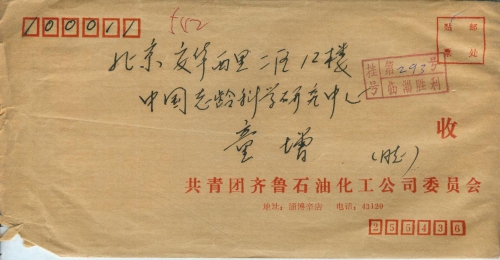 100011
贴 邮
票 处
北京安华西里二区12楼
挂 第293号
号 临淄胜利
中国老龄科学研究中心
收
童增
共青团齐鲁石油化工公司委员会
地址：淄博 电话：43120
255436